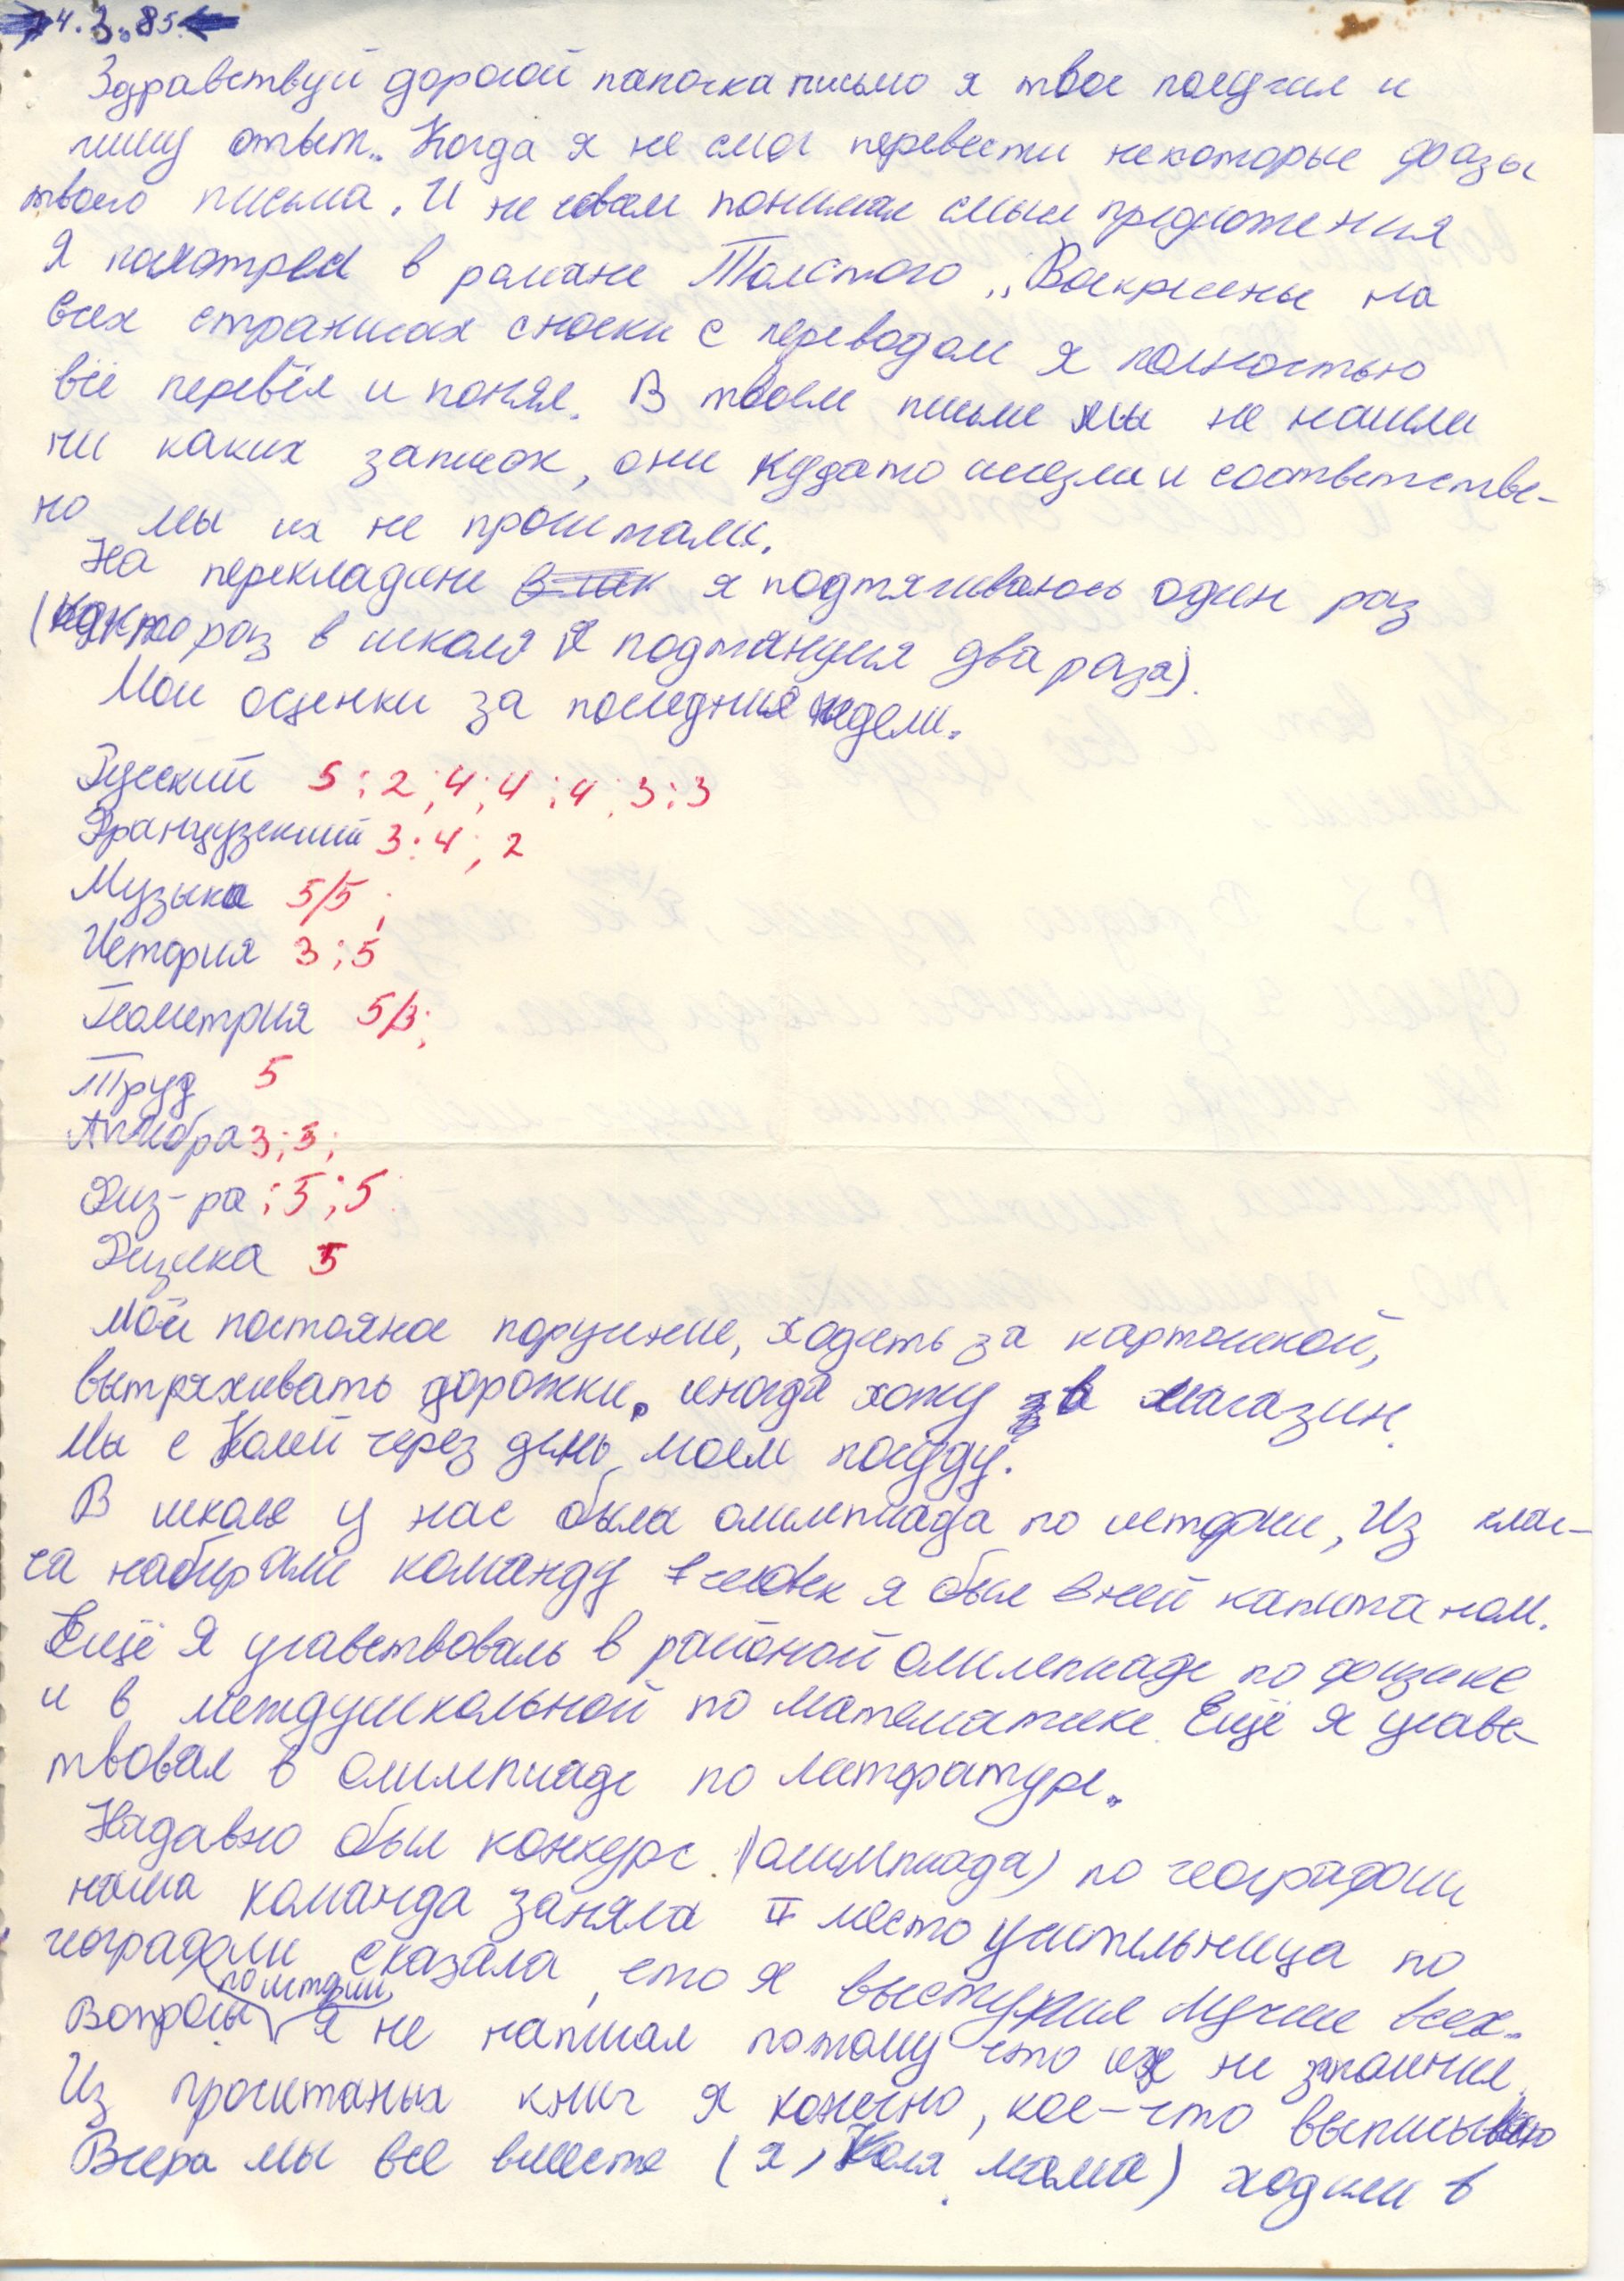 4.3.85.
Здравствуй дорогой папочка письмо я твое получил и
пишу ответ. Когда я не смог перевести некоторые фразы
твоего письма. И не совсем понимал смысл предложения
Я посмотрел в романе Толстого „Воскресенье на
всех страницах сноски с переводом я полностью
всё перевёл и понял. В твоем письме мы не нашли
ни каких записок, они кудато исчезли и соответстве-
но мы их не прочитали.
На перекладине я подтягиваюсь один раз
(раз в школе я подтянулся два раза).
Мои оценки за последние недели.
Русский 5; 2; 4; 4; 4; 3; 3
Французский 3; 4; 2
Музыка 5/5;
История 3; 5
Геометрия 5/3;
Труд 5
Алгебра 3; 3;
Физ-ра; 5; 5
Физика 5
Мои постояное поручение, ходить за картошкой,
вытряхивать дорожки. иногда хожу в магазин.
Мы с Колей через день моем посуду.
В школе у нас была олимпиада по истории, Из клас-
са набирали команду человек я был в ней капитаном.
Ещё я учавствоваль в районой олимпиаде по физике
и в междушкольной по математике. Ещё я учавс-
твовал в олимпиаде по литературе.
Надавно был конкурс (олимпиада) по географии
наша команда заняла II место учительница по
географии сказала, что я выступил лучше всех.
по истории
Вопросы я не написал потому что их не запомнил.
Из прочитаных книг я конечно, кое-что выписываю
Вчера мы все вместе (я, Коля, мама) ходили в